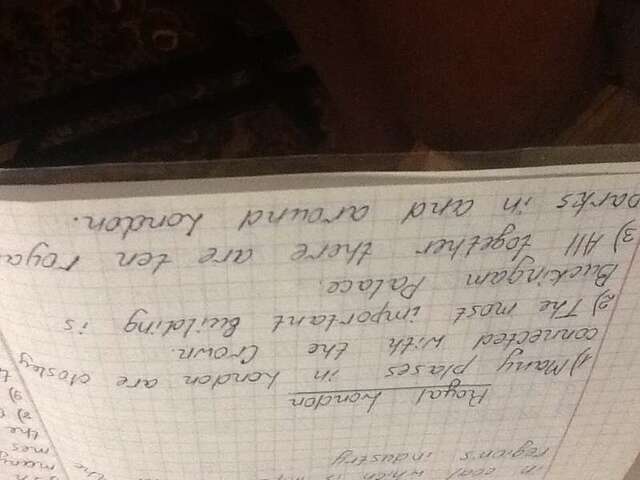 in coal which is
region's industry
the
many
mes
the
2)
3)
Royal London
1) Many plases in London are closley
connected with the Crown.
2) The most important Building is
Buckingam Palace.
3) All together there are ten roya
parks in and around London.